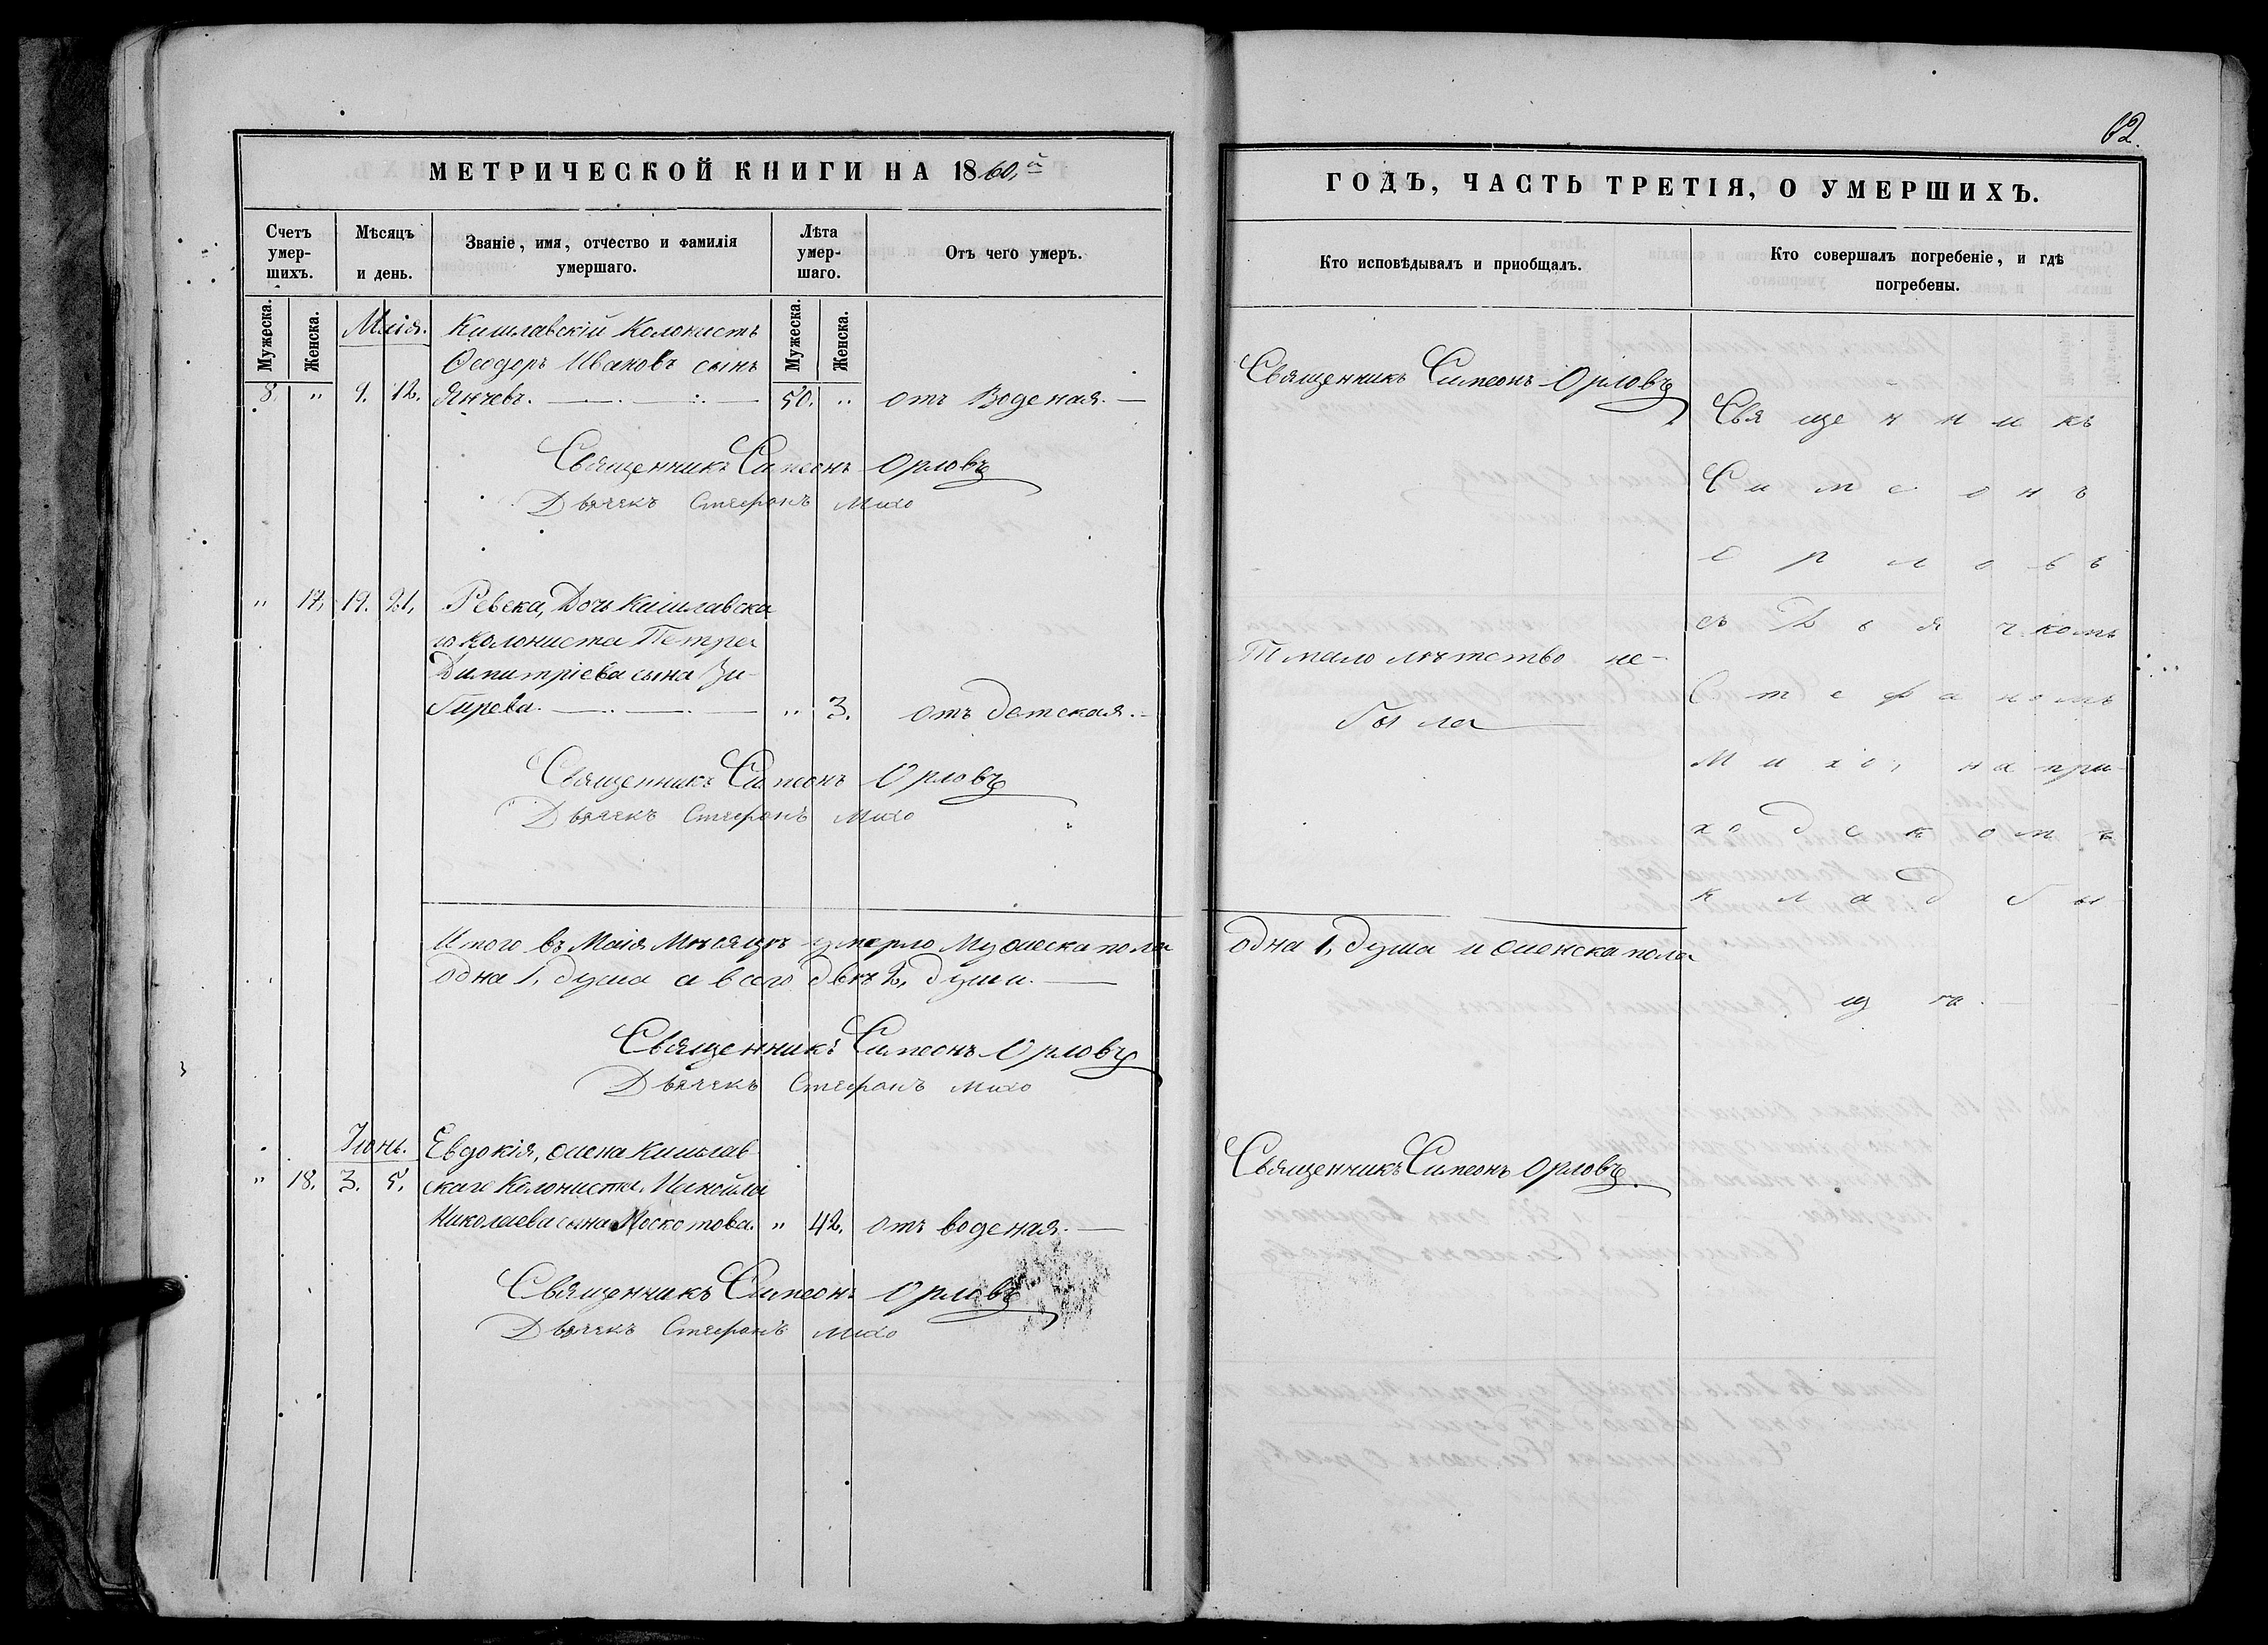 МЕТРИЧЕСКОЙ КНИГИ НА 1860,й
Счетъ умер-шихъ.
Мѣсяцъ и день.
Званіе, имя, отчество и фамилія умершаго.
Лѣта умер-шаго.
Отъ чего умеръ.
Мужеска.
Женска.
Мужеска.
Женска.
Маія. Кишлавскій Колонистъ
Ѳеодоръ Ивановъ сынъ
8. " 9. 12. Янчевъ. 50. " отъ Воденая.
Священникъ Симеонъ Орловъ
Дьячекъ Стефанъ Михо
" 17, 19. 21, Ревека, Дочь Кишлавска
го Колониста Петра
Димитріева сына
" 3. отъ детская.
Священникъ Симеонъ Орловъ
Дьячекъ Стефанъ Михо
Итого въ Маія Мѣсяцѣ умерло Мужеска пола
одна 1, душа а всего двѣ 2, души.
Священникъ Симеонъ Орловъ
Дьячекъ Стефанъ Михо
Іюнь. Евдокія, жена Кишлав
" 18. 3. 5. скаго Колониста Манойла
Николаева сына Москотова. " 42, отъ воденая.
Священникъ Симеонъ Орловъ
Дьячекъ Стефанъ Михо
62.
ГОДЪ, ЧАСТЬ ТРЕТІЯ, О УМЕРШИХЪ.
Кто исповѣдывалъ и приобщалъ.
Кто совершалъ погребеніе, и гдѣ
погребены.
Священникъ Симеонъ Орловъ
малолѣтство не-
была
одна 1, душа и женска пола
Священникъ Симеонъ Орловъ
Священникъ
Симеонъ
Орловъ
съ Дьячкомъ
Стефаномъ
Михо, на при
ходскомъ
кладбы
ща.